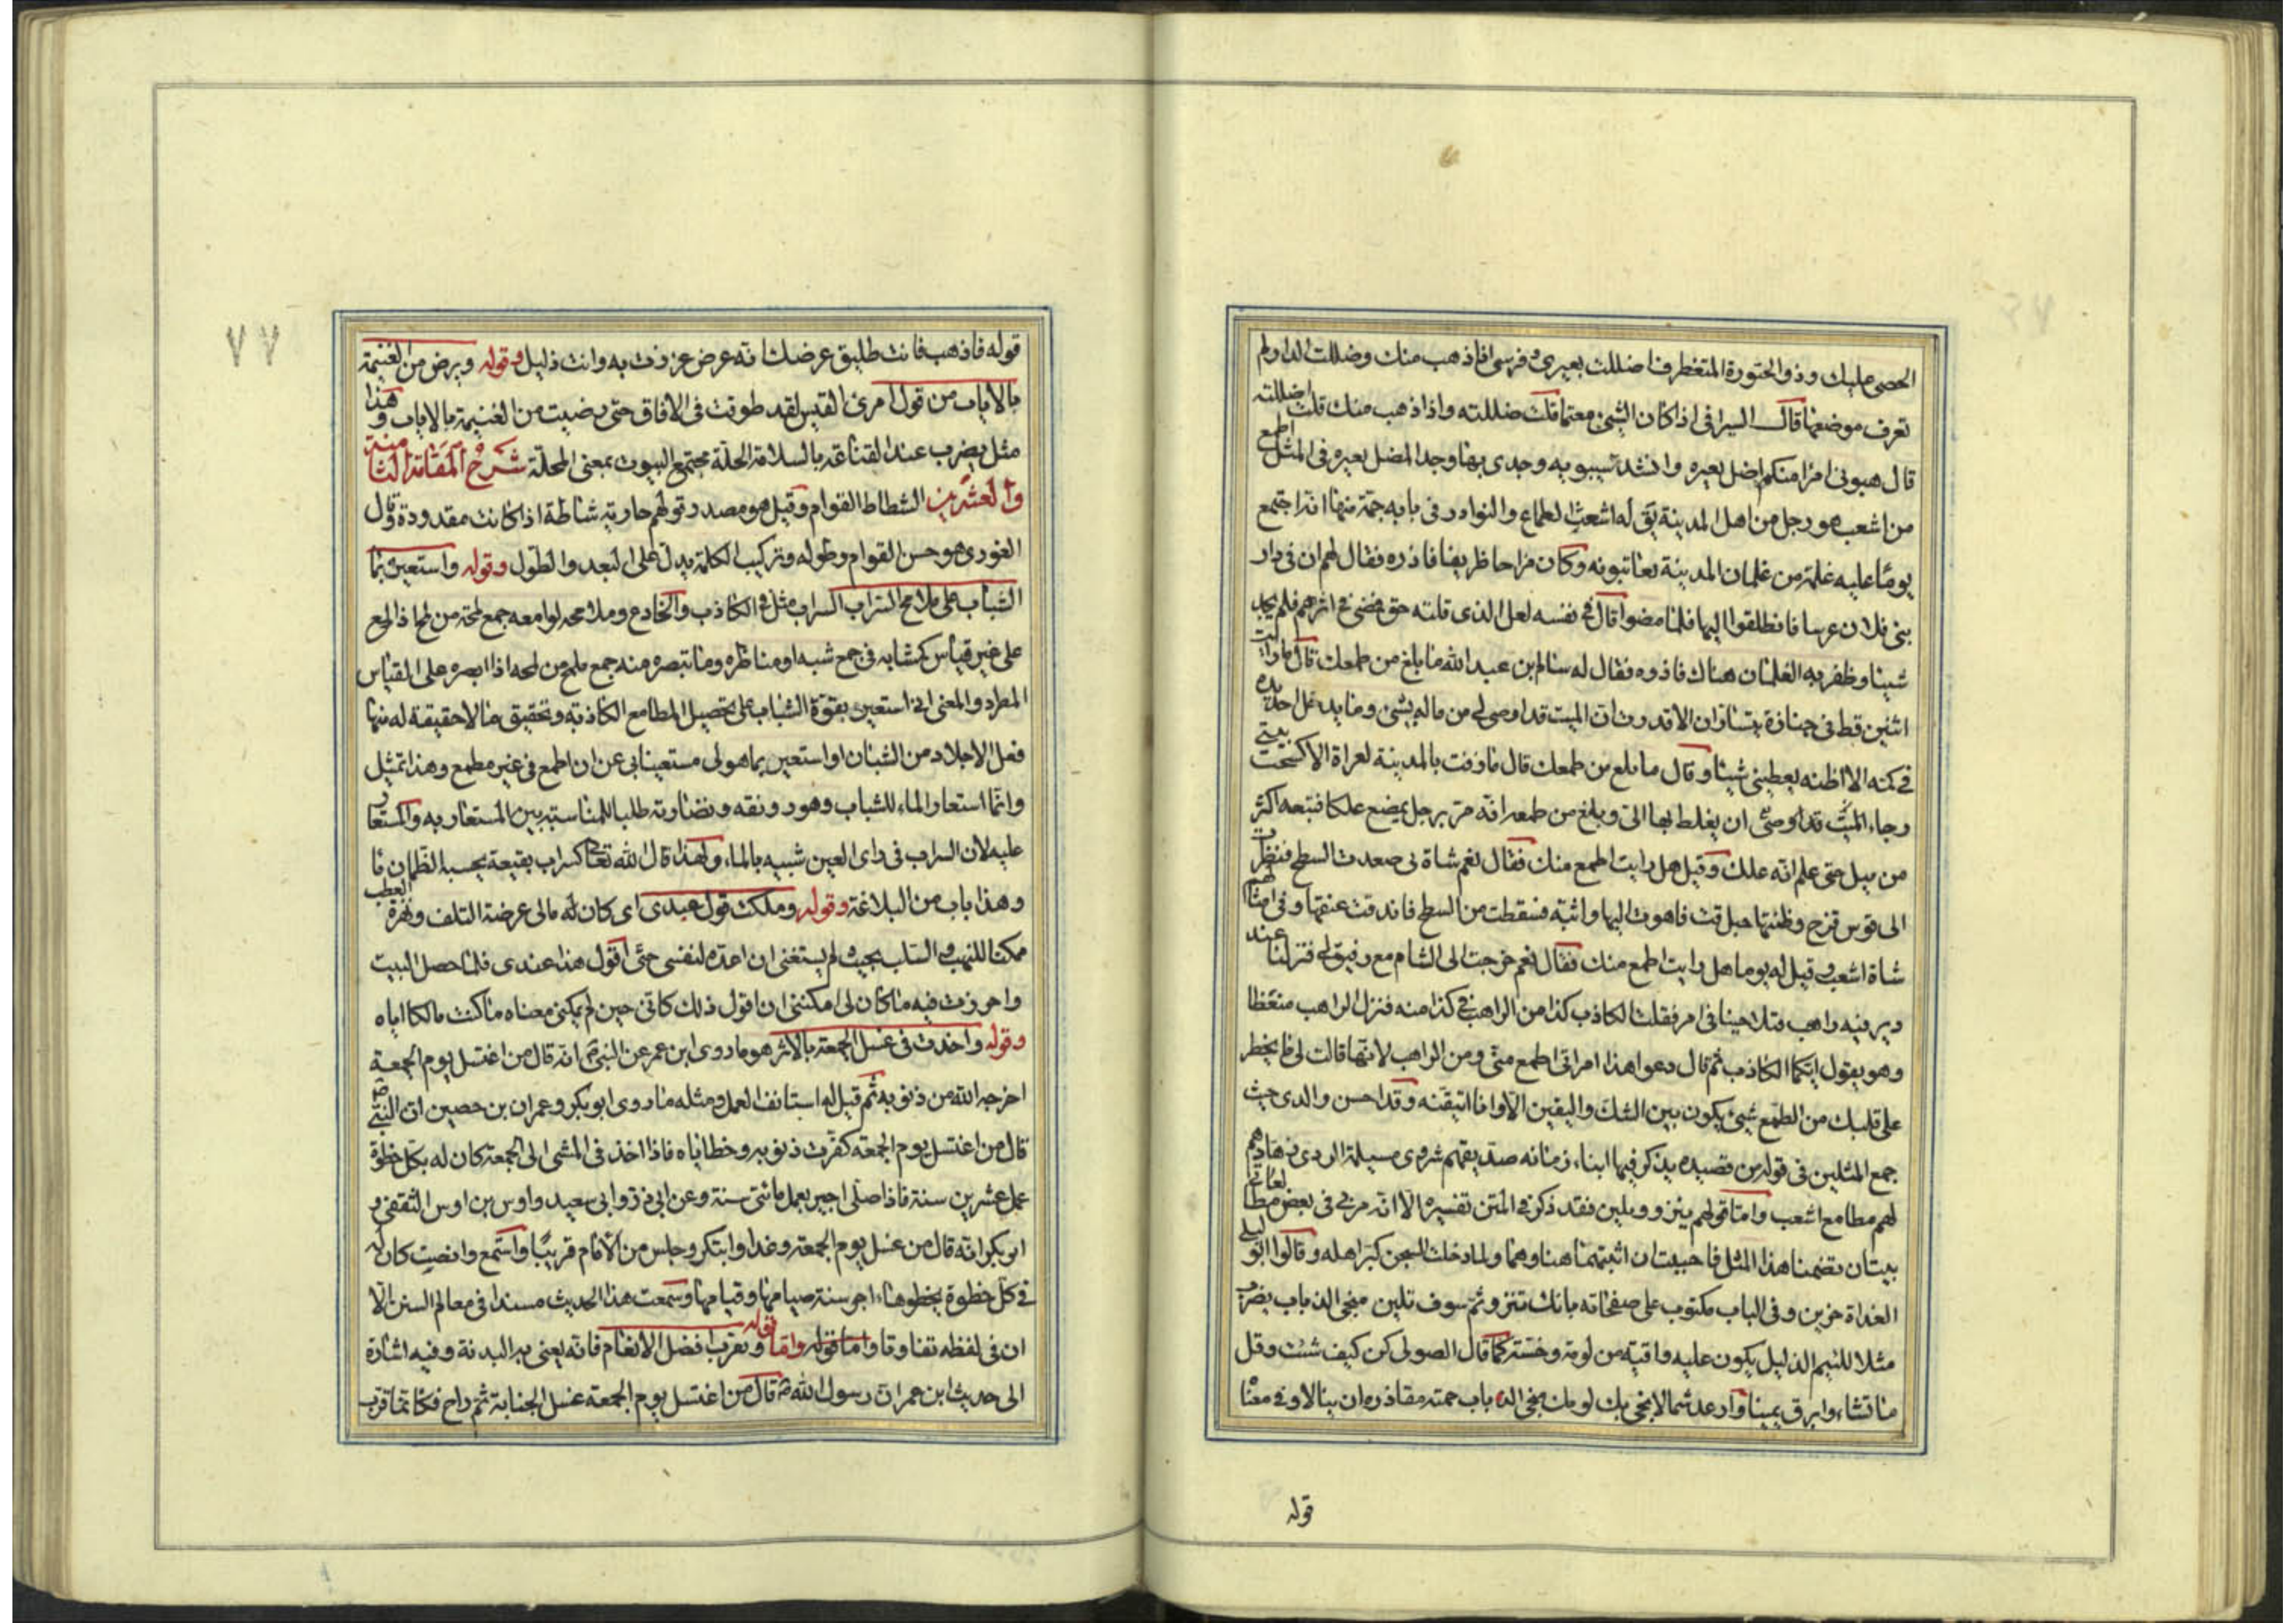 الحصى عليك وذو الختورة المتغطرف اضللت بعيرى وفرسى اذا ذهب منك وضللت الدار اذا لم
تعرف موضعها قال السيرافى اذا كان الشئ مقيما قلت ضللته واذا ذهب منك قلت اضللته
قال هبونى امرا منكم اضل بعيره وانشد سيبويه وجدى بها وجد المضل بعيره فى المثل اطمع
من اشعب هو رجل من اهل المدينة يق له اشعب الطماع والنوادر فى بابه جمة منها انه اجتمع
يوما عليه غلمة من غلمان المدينة يعاتبونه وكان مزاحا ظريفا فاذوه فقال لهم ان فى دار
بنى فلان عرسا فانطلقوا اليها فلما مضوا قال فى نفسه لعل الذى قلته حق فمضى فى اثرهم فلم يجد
شيئا وظفر به الغلمان هناك فاذوه فقال له سالم بن عبد الله ما بلغ من طمعك قال ما رايت
اثنين قط فى جنازة يتساران الا قدرت ان الميت قد اوصى لى من ماله بشئ وما يدخل احد يده
فى كمه الا اظنه يعطينى شيئا وقال ما بلغ من طمعك قال ما زفت بالمدينة امراة الا كسحت بيتى
رجاء ان يغلط بها الى وبلغ من طمعه انه مر برجل يمضغ علكا فتبعه اكثر
من ميل حتى علم انه علك وقيل هل رايت اطمع منك فقال نعم شاة لى صعدت السطح فنظرت
الى قوس قزح وظنتها حبل قت فاهوت اليها واثبة فسقطت من السطح فاندقت عنقها وفى امثالهم
شاة اشعب وقيل له يوما هل رايت اطمع منك فقال نعم خرجت الى الشام مع رفيق لى فنزلنا عند
دير فيه راهب فتلاحينا فى امر فقلت الكاذب كذا من الراهب فى كذا منه فنزل الراهب منعظا
وهو يقول ايكما الكاذب ثم قال دعوا هذا امراتى اطمع منى ومن الراهب لانها قالت لى ما يخطر
على قلبك من الطمع شئ يكون بين الشك واليقين الا وانا اتيقنه وقد احسن والدى حيث
جمع المثلين فى قوله من قصيده يذكر فيها ابناء زمانه صديقهم شروى مسيلمة الردى نهادهم
لهم مطامع اشعب واما قولهم ينزو ويلين فقد ذكر فى المتن تفسيره الا انه مر بى فى بعض مطالعاتى
بيتان تضمنا هذا المثل فاحببت ان اثبتهما هنا وهما ولما دخلت السجن كبر اهله وقالوا ابو ليلى
الغداة حزين وفى الباب مكتوب على صفحاته بانك تنزو ثم سوف تلين منجى الذباب يضرب
مثلا للئيم الذليل يكون عليه واقية من لومه وخسته كما قال الصولى كن كيف شئت وقل
ما تشاء وابرق يمينا وارعد شمالا نجى بك لومك منجى الذباب حمته مقاذره ان ينالا وفى معناه
قوله
٧٧
قوله فاذهب فانت طليق عرضك انه عرض عززت به وانت ذليل وقوله ويرض من الغنيمة
بالاياب من قول امرئ القيس لقد طوفت فى الافاق حتى رضيت من الغنيمة بالاياب وهذا
مثل يضرب عند القناعة بالسلامة الحلة مجتمع البيوت بمعنى المحلة شرح المقامة الثامنة
والعشرين الشطاط القوام وقيل هو مصدر قولهم جارية شاطة اذا كانت مقدودة وقال
الغورى هو حسن القوام وطوله وتركيب الكلمة يدل على البعد والطول وقوله واستعين بماء
الشباب على ملامح السراب السراب مثل فى الكاذب والخادع وملامحه لوامعه جمع لمحة من لمح اذا لمع
على غير قياس كمشابه فى جمع شبه او مناظره وما تبصره منه جمع ملمح من لمحه اذا ابصره على القياس
المطرد والمعنى انى استعين بقوة الشباب على تحصيل المطامع الكاذبة وتحقيق ما لا حقيقة له منها
فعل الاجلاد من الشبان او استعين بما هو لى مستعينا بى عن ان اطمع فى غير مطمع وهذا تمثيل
وانما استعار الماء للشباب وهو رونقه ونضارته طلبا للمناسبة بين المستعار به والمستعار
عليه لان السراب فى راى العين شبيه بالماء ولهذا قال الله تعالى كسراب بقيعة يحسبه الظمان ماء
وهذا باب من البلاغة وقوله وملكت قول عندى اى كان له مالى عرضة التلف ونهزة العطب
ممكنا للنهب والسلب بحيث لم يستغنى ان اعده لنفسى حتى اقول هذا عندى فلما حصل البيت
واحرزت فيه ما كان لى امكننى ان اقول ذلك كانى حين لم يمكنى معناه ما كنت مالكا اياه
وقوله واخذت فى غسل الجمعة بالاثر هو ما روى ابن عمر عن النبى ص انه قال من اغتسل يوم الجمعة
اخرجه الله من ذنوبه ثم قيل له استانف العمل ومثله ما روى ابو بكر وعمران بن حصين ان النبى ص
قال من اغتسل يوم الجمعة كفرت ذنوبه وخطاياه فاذا اخذ فى المشى الى الجمعة كان له بكل خطوة
عمل عشرين سنة فاذا صلى اجير بعمل مائتى سنة وعن ابى ذر وابى سعيد واوس بن اوس الثقفى و
ابى بكر انه قال من غسل يوم الجمعة وغدا وابتكر وجلس من الامام قريبا واستمع وانصت كان له
فى كل خطوة يخطوها اجر سنة صيامها وقيامها وسمعت هذا الحديث مسندا فى معالم السنن الا
ان فى لفظه تفاوتا واما قوله وتقرب افضل الانعام فانه يعنى به البدنة وفيه اشارة
الى حديث ابن عمر ان رسول الله ص قال من اغتسل يوم الجمعة غسل الجنابة ثم راح فكانما قرب